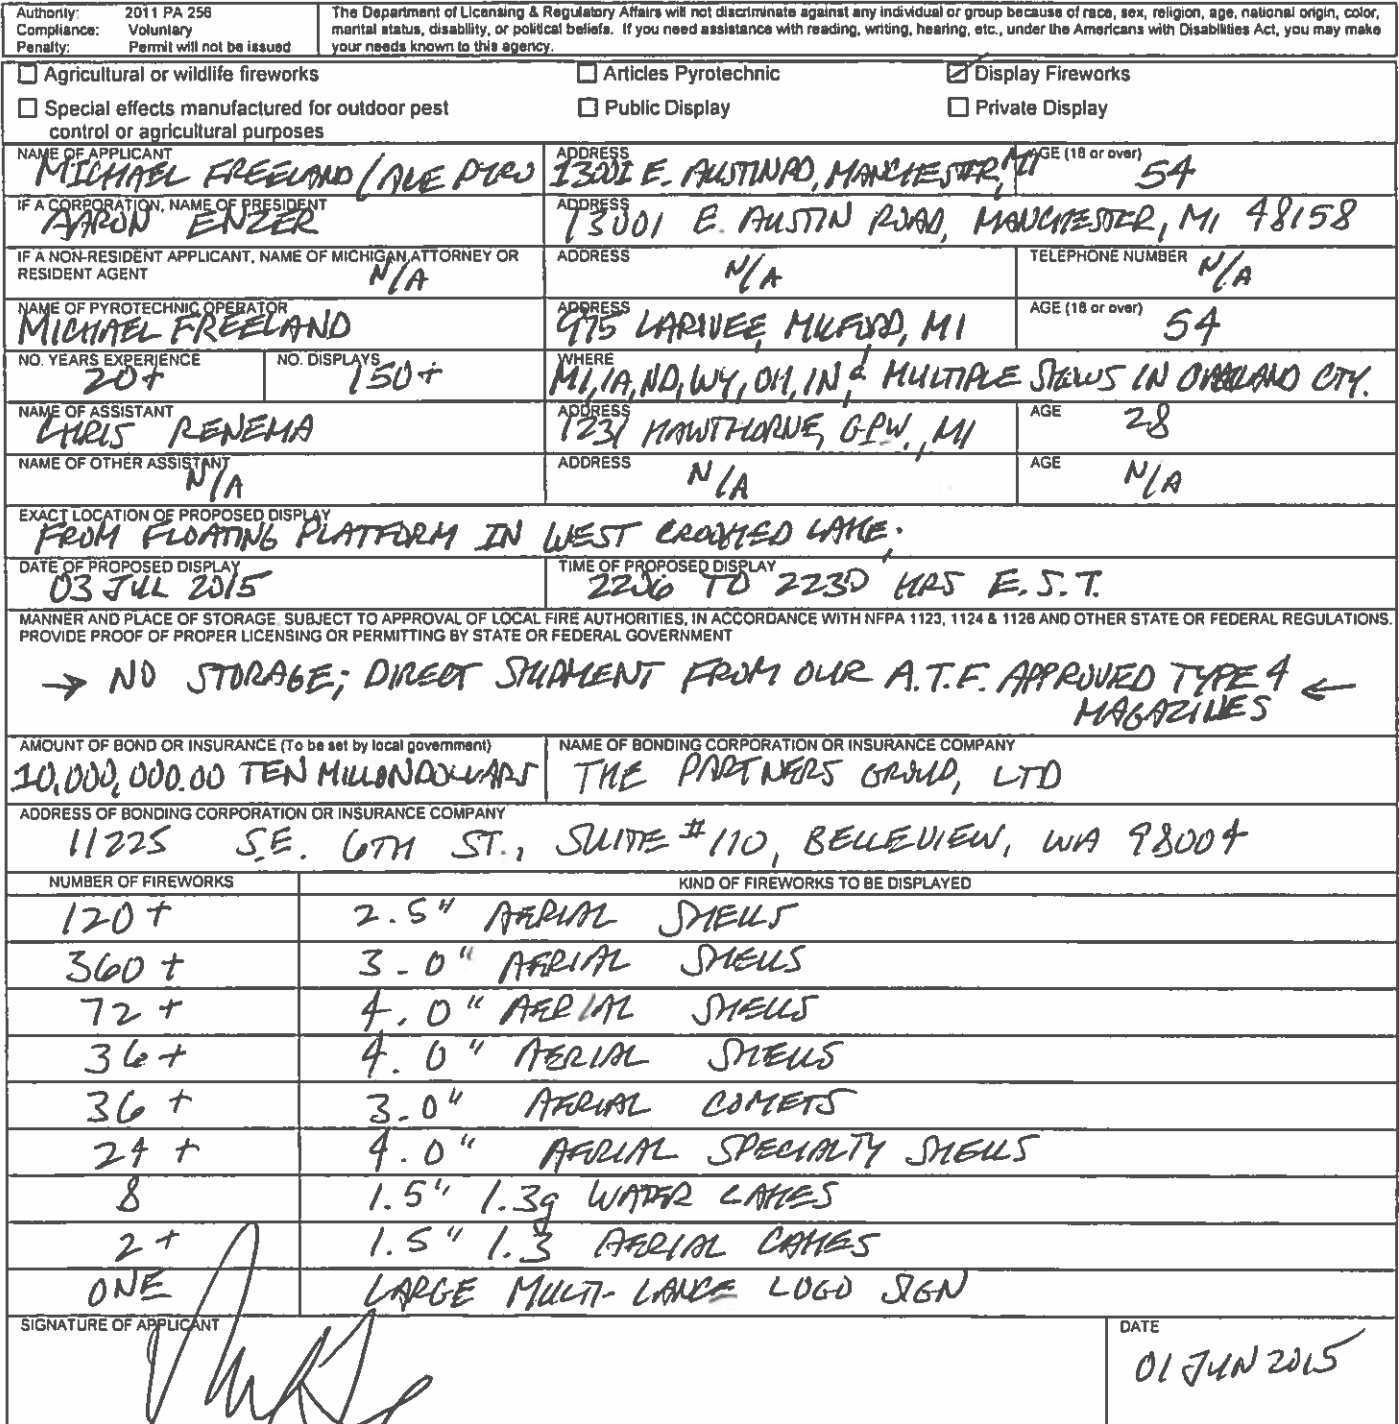 Authority: 2011 PA 256
Compliance: Voluntary
Penalty: Permit will not be issued
The Department of Licensing & Regulatory Affairs will not discriminate against any individual or group because of race, sex, religion, age, national origin, color,
marital status, disability, or political beliefs. If you need assistance with reading, writing, hearing, etc., under the Americans with Disabilities Act, you may make
your needs known to this agency.
Agricultural or wildlife fireworks
Articles Pyrotechnic
Display Fireworks
Special effects manufactured for outdoor pest
control or agricultural purposes
Public Display
Private Display
NAME OF APPLICANT
MICHAEL FREELAND / ACE PYRO
ADDRESS
13001 E. AUSTIN RD, MANCHESTER, MI
AGE (18 or over)
54
IF A CORPORATION, NAME OF PRESIDENT
AARON ENZER
ADDRESS
13001 E. AUSTIN ROAD, MANCHESTER, MI 48158
IF A NON-RESIDENT APPLICANT, NAME OF MICHIGAN ATTORNEY OR
RESIDENT AGENT
N/A
ADDRESS
N/A
TELEPHONE NUMBER
N/A
NAME OF PYROTECHNIC OPERATOR
MICHAEL FREELAND
ADDRESS
975 LARIVEE, MILFORD, MI
AGE (18 or over)
54
NO. YEARS EXPERIENCE
20+
NO. DISPLAYS
150+
WHERE
MI, IA, ND, WY, OH, IN, & MULTIPLE SHOWS IN OAKLAND CTY.
NAME OF ASSISTANT
CHRIS RENEMA
ADDRESS
1231 HAWTHORNE, G.P.W., MI
AGE
28
NAME OF OTHER ASSISTANT
N/A
ADDRESS
N/A
AGE
N/A
EXACT LOCATION OF PROPOSED DISPLAY
FROM FLOATING PLATFORM IN WEST CROOKED LAKE.
DATE OF PROPOSED DISPLAY
03 JUL 2015
TIME OF PROPOSED DISPLAY
2206 TO 2230 HRS E.S.T.
MANNER AND PLACE OF STORAGE, SUBJECT TO APPROVAL OF LOCAL FIRE AUTHORITIES, IN ACCORDANCE WITH NFPA 1123, 1124 & 1126 AND OTHER STATE OR FEDERAL REGULATIONS.
PROVIDE PROOF OF PROPER LICENSING OR PERMITTING BY STATE OR FEDERAL GOVERNMENT
→ NO STORAGE; DIRECT SHIPMENT FROM OUR A.T.F. APPROVED TYPE 4 ←
MAGAZINES
AMOUNT OF BOND OR INSURANCE (To be set by local government)
10,000,000.00 TEN MILLION DOLLARS
NAME OF BONDING CORPORATION OR INSURANCE COMPANY
THE PARTNERS GROUP, LTD
ADDRESS OF BONDING CORPORATION OR INSURANCE COMPANY
11225 S.E. 6TH ST., SUITE #110, BELLEVIEW, WA 98004
NUMBER OF FIREWORKS
KIND OF FIREWORKS TO BE DISPLAYED
120+ 2.5" AERIAL SHELLS
360+ 3.0" AERIAL SHELLS
72+ 4.0" AERIAL SHELLS
36+ 4.0" AERIAL SHELLS
36+ 3.0" AERIAL COMETS
24+ 4.0" AERIAL SPECIALTY SHELLS
8 1.5" 1.3g WATER CAKES
2+ 1.5" 1.3 AERIAL CAKES
ONE LARGE MULTI-LANCE LOGO SIGN
SIGNATURE OF APPLICANT
DATE
01 JUN 2015